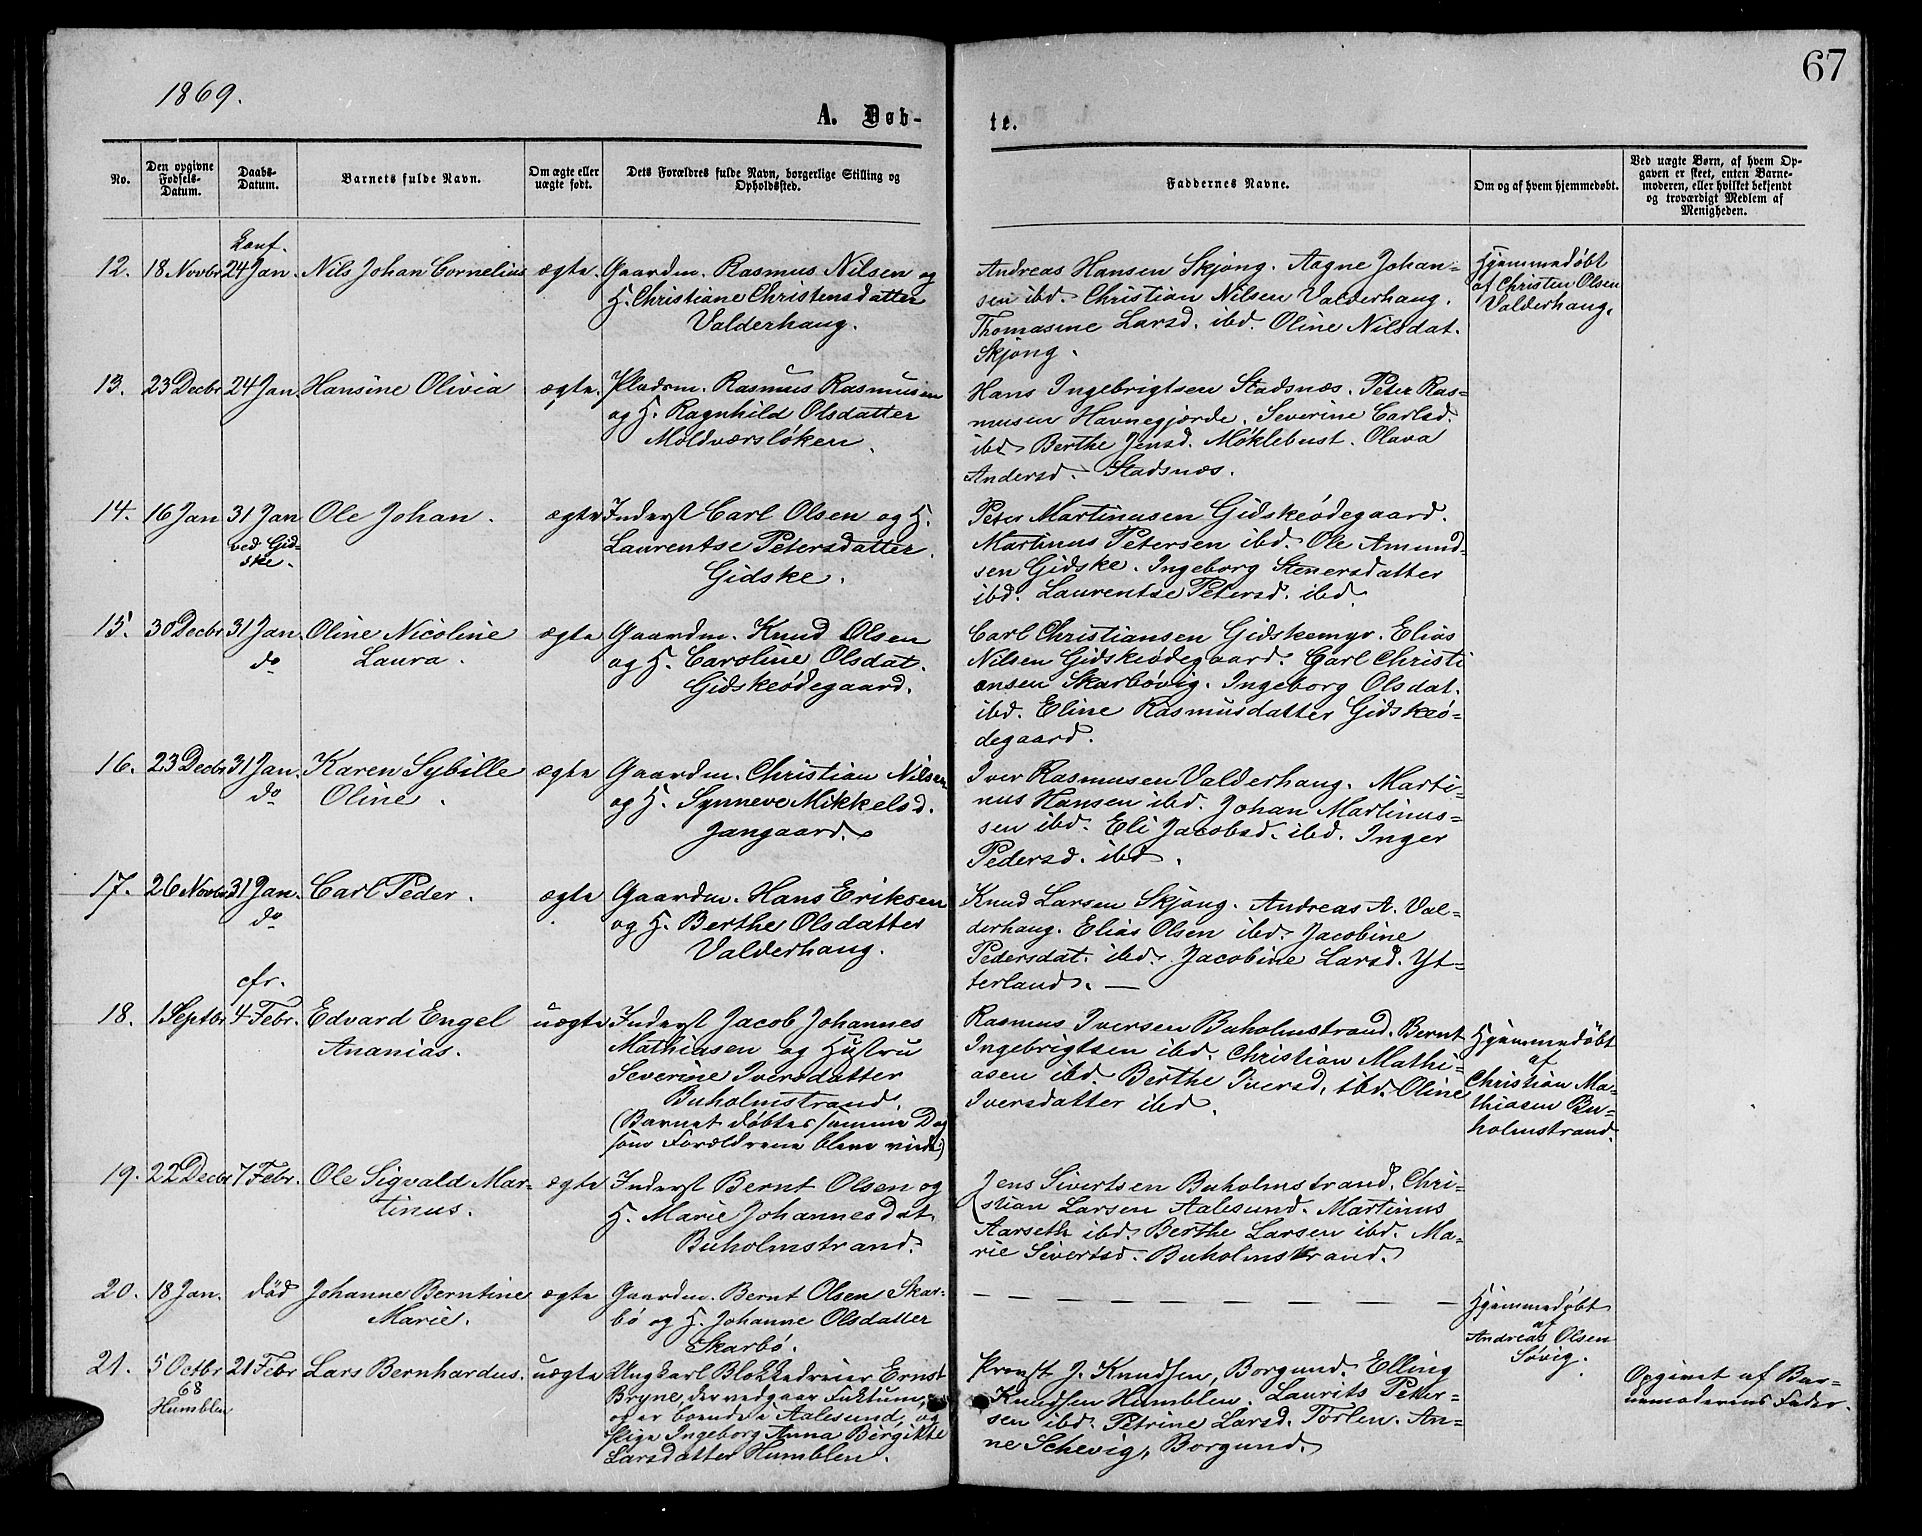 67
1869.
A. Døb-
te.
No.
Den opgivne
Fødsels-
Datum.
Daabs-
Datum.
Barnets fulde Navn.
Om ægte eller
uægte født.
Dets Forældres fulde Navn, borgerlige Stilling og
Opholdssted.
Faddernes Navne.
Om og af hvem hjemmedøbt.
Ved uægte Børn, af hvem Op-
gaven er skeet, enten Barne-
moderen, eller hvilket bekjendt
og troværdigt Medlem af
Menigheden.
12.
18 Novbr
Conf.
24 Jan.
Nils Johan Cornelius
ægte.
Gaardm. Rasmus Nilsen og
H. Christiane Christensdatter
Valderhaug.
Andreas Hansen Skjong. Aagne Johan-
sen ibd. Christian Nilsen Valderhaug.
Thomasine Larsd. ibd. Oline Nilsdat.
Skjong.
Hjemmedøbt
af Christen Olsen
Valderhaug.
13.
23 Decbr
24 Jan.
Hansine Olivia
ægte.
Pladsm. Rasmus Rasmusen
og H. Ragnhild Olsdatter
Moldværsløken.
Hans Ingebrigtsen Stadsnæs. Peter Ras-
musen Havnegjerde. Severine Carlsd.
ibd. Berthe Jensd. Møklebust. Olava
Andersd. Stadsnæs.
14.
16 Jan
31 Jan
ved Gid-
ske.
Ole Johan.
ægte
Inderst Carl Olsen og H.
Laurentse Petersdatter.
Gidske.
Peter Martinusen Gidskeødegaard.
Martinus Petersen ibd. Ole Amund-
sen Gidske. Ingeborg Stenersdatter
ibd. Laurentse Petersd. ibd.
15.
30 Decbr
31 Jan.
do
Oline Nicoline
Laura.
ægte
Gaardm. Knud Olsen
og H. Caroline Olsdat.
Gidskeødegaard.
Carl Christiansen Gidskemyr. Elias
Nilsen Gidskeødegaard. Carl Christi
ansen Skarbøvig. Ingeborg Olsdat.
ibd. Eline Rasmusdatter Gidskeø-
degaard.
16.
23 Decbr
31 Jan.
do
Karen Sybille
Oline.
ægte
Gaardm. Christian Nilsen
og H. Synneve Mikkelsd.
Jangaard.
Iver Rasmusen Valderhaug. Marti-
nus Hansen ibd. Johan Martinus-
sen ibd. Eli Jacobsd. ibd. Inger
Pedersd. ibd.
17.
26 Novbr
31 Jan.
do
Carl Peder.
ægte
Gaardm. Hans Eriksen
og H. Berthe Olsdatter
Valderhaug.
Knud Larsen Skjong. Andreas A. Val-
derhaug. Elias Olsen ibd. Jacobine
Pedersdat. ibd. Jacobine Larsd. Yt-
terland. —
18.
1 Septbr
cfr.
4 Febr.
Edvard Engel
Ananias.
uægte
Inderst Jacob Johannes
Mathiasen og Hustru
Severine Iversdatter
Buholmstrand.
(Barnet døbtes samme Dag
som Forældrene bleve viede)
Rasmus Iversen Buholmstrand. Bernt
Ingebrigtsen ibd. Christian Mathi-
asen ibd. Berthe Iversd. ibd. Oline
Iversdatter ibd.
Hjemmedøbt
af
Christian Ma-
thiasen Bu-
holmstrand.
19.
22 Decbr
7 Febr.
Ole Sigvald Mar-
tinus.
ægte
Inderst Bernt Olsen og
H. Marie Johannesdat.
Buholmstrand.
Jens Sivertsen Buholmstrand. Chri-
stian Larsen Aalesund. Martinus
Aarseth ibd. Berthe Larsen ibd. Ma-
rie Sivertsd. Buholmstrand.
20.
18 Jan.
død
Johanne Berntine
Marie.
ægte
Gaardm. Bernt Olsen Skar-
bø og H. Johanne Olsdatter
Skarbø.
Hjemmedøbt
af
Andreas Olsen
Søvig.
21.
5 Octbr
68
Humblen
21 Febr
Lars Bernhardus.
uægte
Ungkarl Blokkedreier Ernst
Bryne, der vedgaar Faktum,
og er boende i Aalesund, og
Pige Ingeborg Anna Birgitte
Larsdatter Humblen.
Provst J. Knudsen, Borgund. Elling
Knudsen Humblen. Laurits Peter-
sen ibd. Petrine Larsd. Torlen. An-
ne Schevig, Borgund.
Opgivet af Bar-
nemoderens Fader.